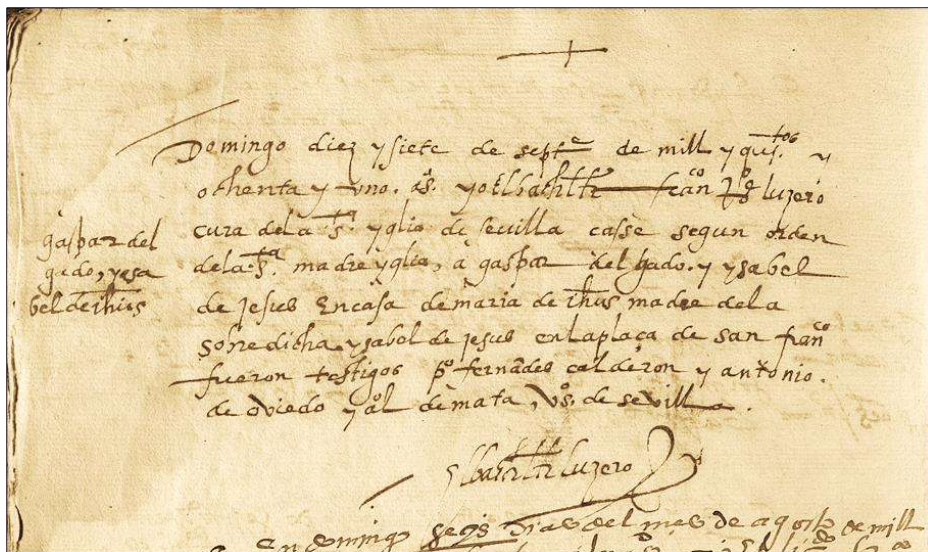 Domingo diez y siete de septe de mill y quis.tos y
ochenta y uno. as. yo El bachiller franco luzero
cura de la s.ta yglia de sevilla casse segun orden
de la s.ta madre yglia, a gaspar delgado. y ysabel
gaspar del
gado, y ysa
bel de ihus
de jesus En casa de maria de ihus madre de la
sobredicha ysabel de jesus en la plaça de san franco
fueron testigos po fernãdes calderon y antonio.
de oviedo y al de mata, vos. de sevilla.
El bachiller luzero
En domingo seis dias del mes de agosto de mill